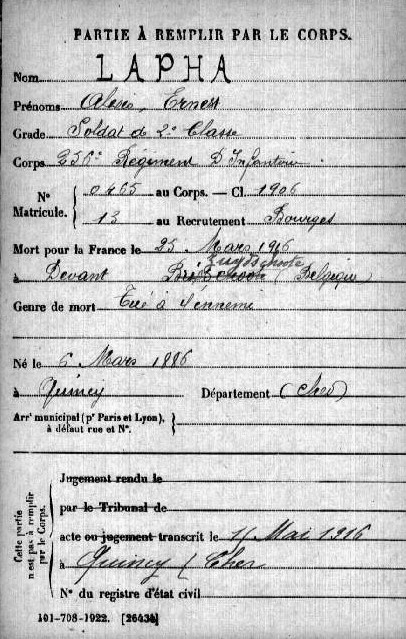 PARTIE À REMPLIR PAR LE CORPS.
Nom LAPHA
Prénoms Alexis, Ernest
Grade Soldat de 2e Classe
Corps 256e Régiment D'Infanterie.
No 0465 au Corps. — Cl. 1906
Matricule. 13 au Recrutement Bourges
Mort pour la France le 25 Mars 1916
Zuydschoote
à Devant (Belgique)
Genre de mort Tué à l'ennemi
Né le 6 Mars 1886
à Quincy Département (Cher)
Arrt municipal (pr Paris et Lyon),
à défaut rue et No.
Cette partie
n'est pas à remplir
par le Corps.
Jugement rendu le
par le Tribunal de
acte ou jugement transcrit le 11 Mai 1916
à Quincy (Cher
No du registre d'état civil
101-708-1922. [26434]